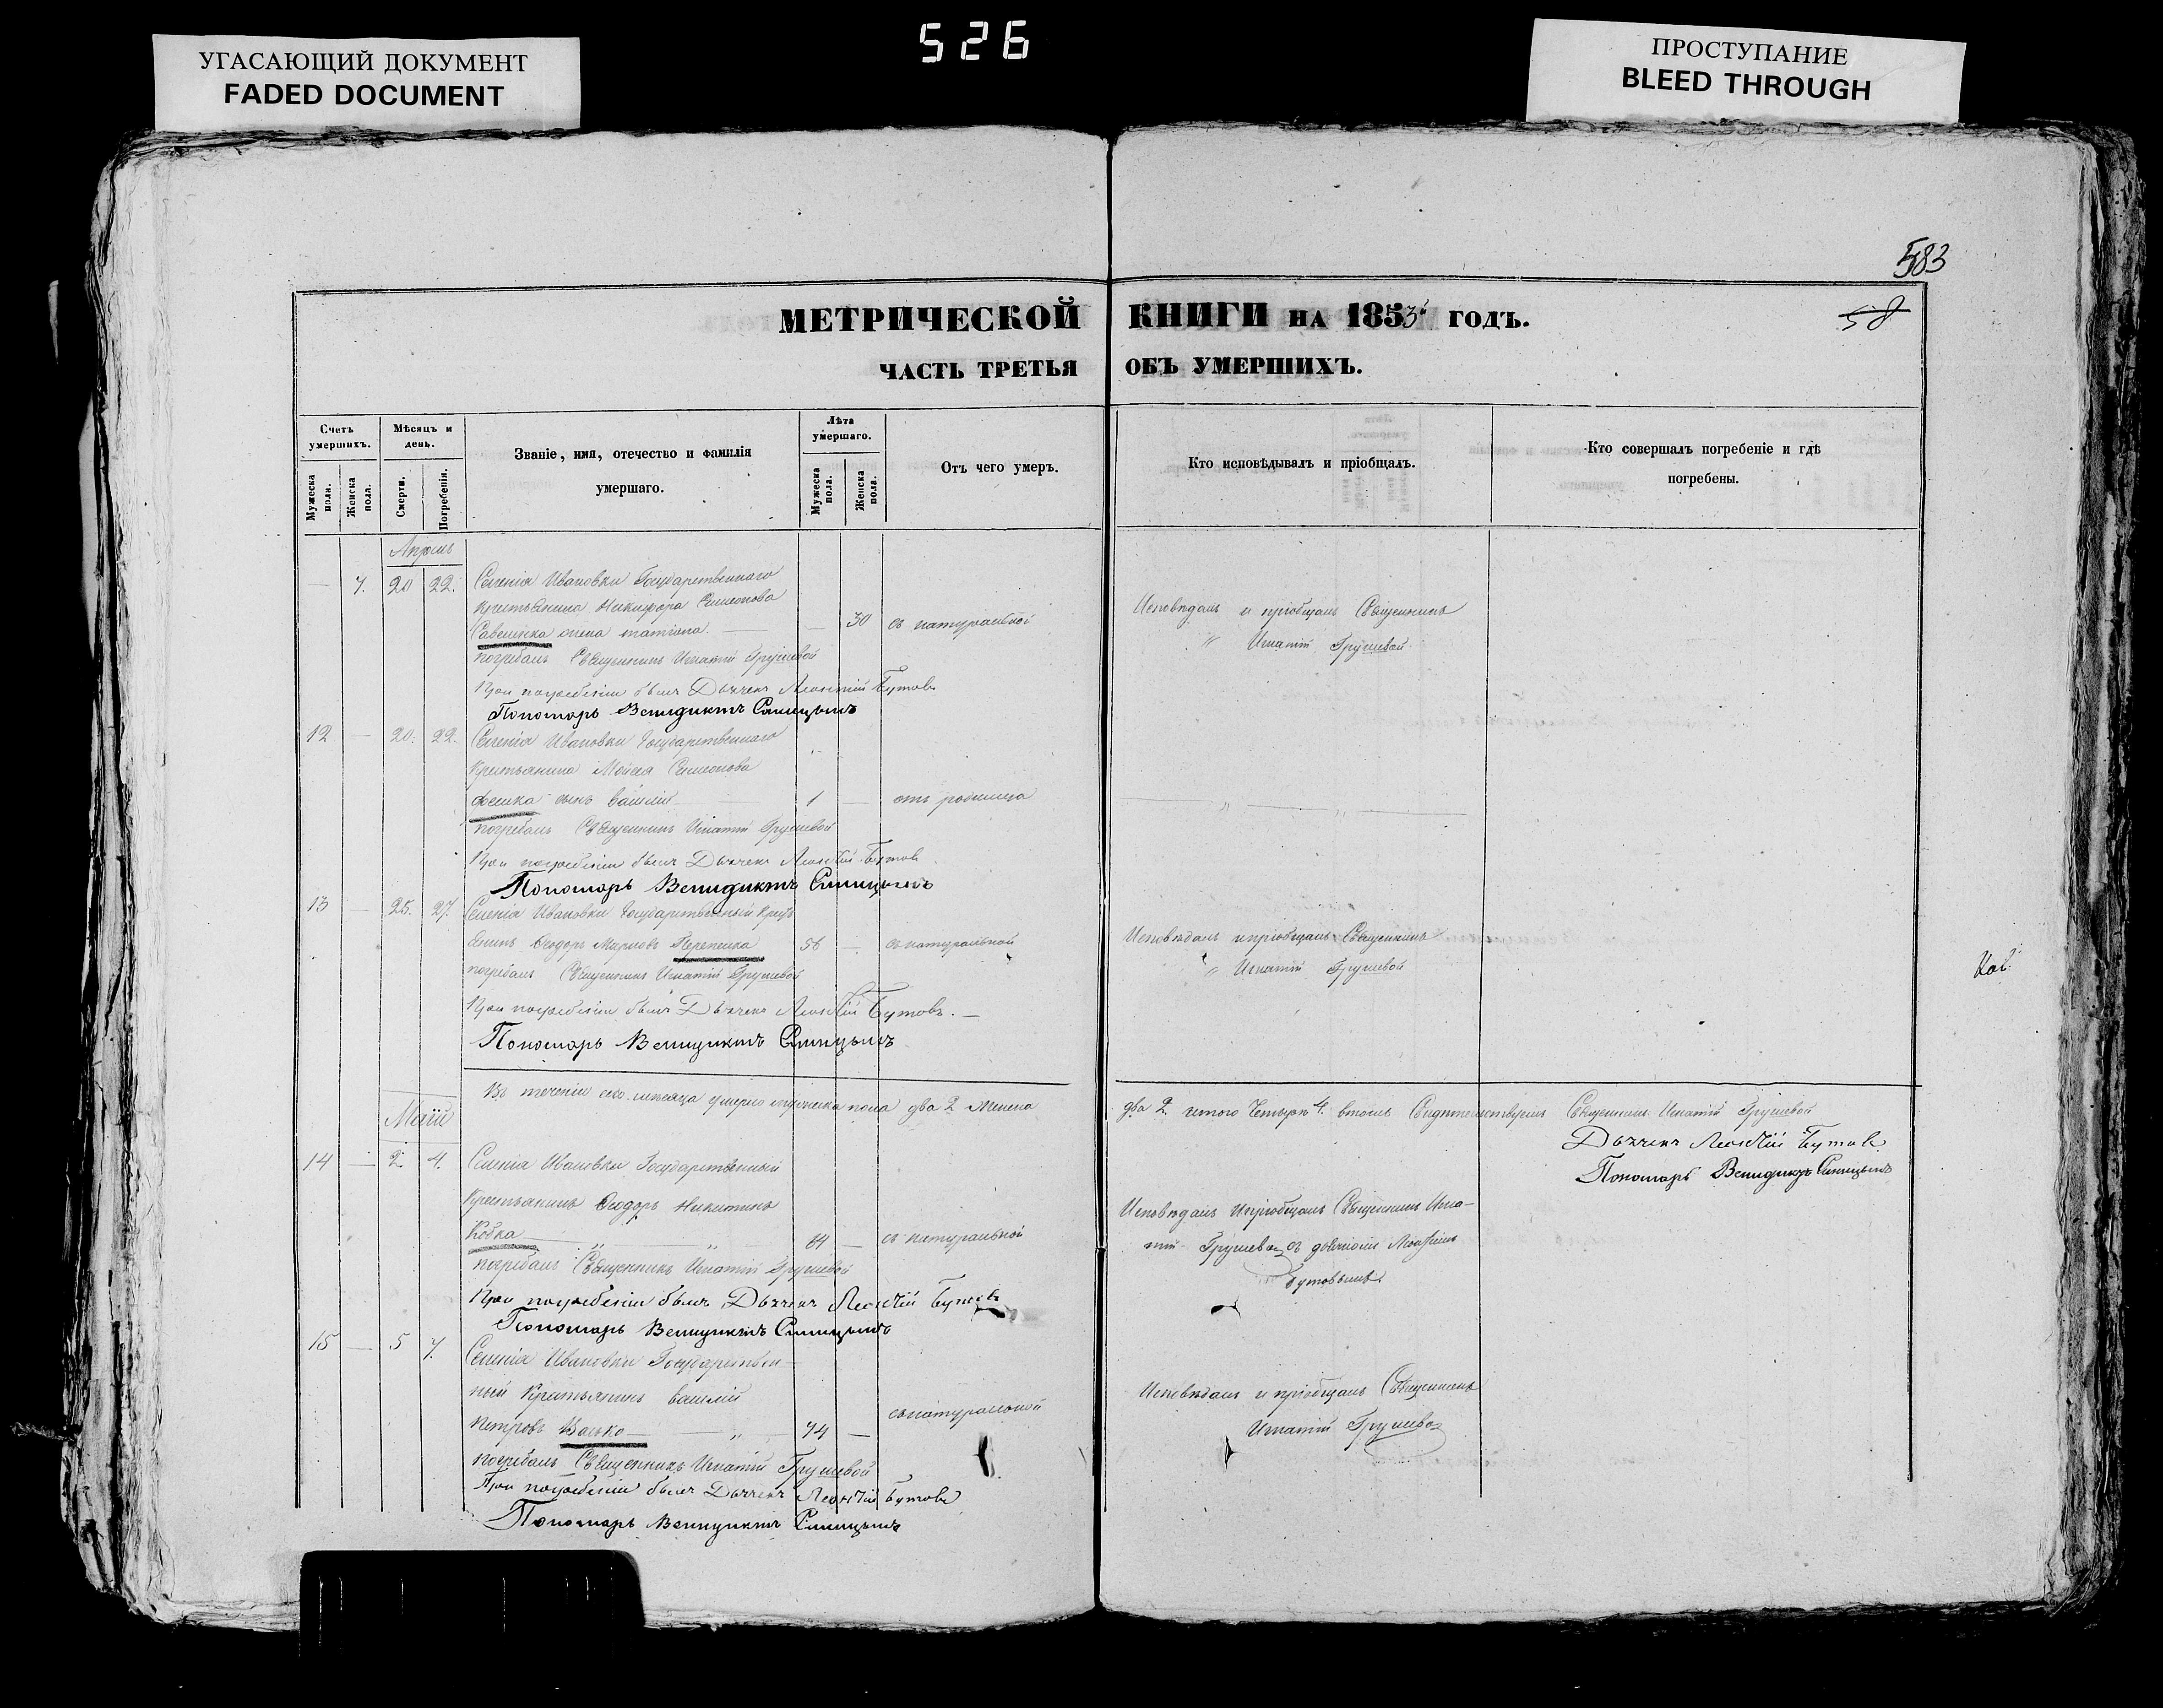 УГАСАЮЩИЙ ДОКУМЕНТ
FADED DOCUMENT
526
ПРОСТУПАНИЕ
BLEED THROUGH
583
58
МЕТРИЧЕСКОЙ КНИГИ НА 1853 ГОДЪ.
ЧАСТЬ ТРЕТЬЯ ОБЪ УМЕРШИХЪ.
Счетъ умершихъ.
Мужеска пола.
Женска пола.
Мѣсяцъ и день.
Смерти.
Погребенія.
Званіе, имя, отечество и фамилія
умершаго.
Лѣта умершаго.
Мужеска пола.
Женска пола.
Отъ чего умеръ.
Кто исповѣдывалъ и пріобщалъ.
Кто совершалъ погребеніе и гдѣ
погребены.
Апрѣль
— 7. 20 22. Селенія Ивановки Государственнаго
Крестьянина Никифора Симеонова
жена — 30 съ натуральной
Исповѣдалъ и пріобщалъ Священникъ
" Игнатій Грушевой
погребалъ Священникъ Игнатій Грушевой
При погребеніи былъ Дьячекъ Леонтій Бутовъ
Пономарь Венидиктъ Синицынъ
12 — 20. 22. Селенія Ивановки Государственнаго
Крестьянина Моисея Симеонова
сынъ Василій 1 — отъ родимца
погребалъ Священникъ Игнатій Грушевой
При погребеніи былъ Дьячекъ Леонтій Бутовъ
Пономарь Венидиктъ Синицынъ
13 — 25. 27. Селенія Ивановки Государственный Кресть
янинъ Ѳеодоръ Марковъ Перепелка 56 — съ натуральной
Исповѣдалъ и пріобщалъ Священникъ
" Игнатій Грушевой
погребалъ Священникъ Игнатій Грушевой
При погребеніи былъ Дьячекъ Леонтій Бутовъ. —
Пономарь Венидиктъ Синицынъ
Въ теченіи сего месяца умерло мужеска пола два 2 женска два 2. итого Четыре 4. въ томъ Свидѣтельствуемъ Священникъ Игнатій Грушевой
Дьячекъ Леонтій Бутовъ
Пономарь Венидиктъ Синицынъ
Маій
14 — 2. 4. Селенія Ивановки Государственный
Крестьянинъ Ѳеодоръ Никитинъ
Кобка " " 64 — съ натуральной
Исповѣдалъ и пріобщалъ Священникъ Игна-
тій Грушевой съ дьячкомъ Леонтіемъ
Бутовымъ.
погребалъ Священникъ Игнатій Грушевой
При погребеніи былъ Дьячекъ Леонтій Бутовъ
Пономарь Венидиктъ Синицынъ
15 — 5 7. Селенія Ивановки Государствен-
ный Крестьянинъ Василій
Петровъ Васько — " 74 — съ натуральной
Исповѣдалъ и пріобщалъ Священникъ
Игнатій Грушевой
погребалъ Священникъ Игнатій Грушевой
При погребеніи былъ Дьячекъ Леонтій Бутовъ
Пономарь Венидиктъ Синицынъ